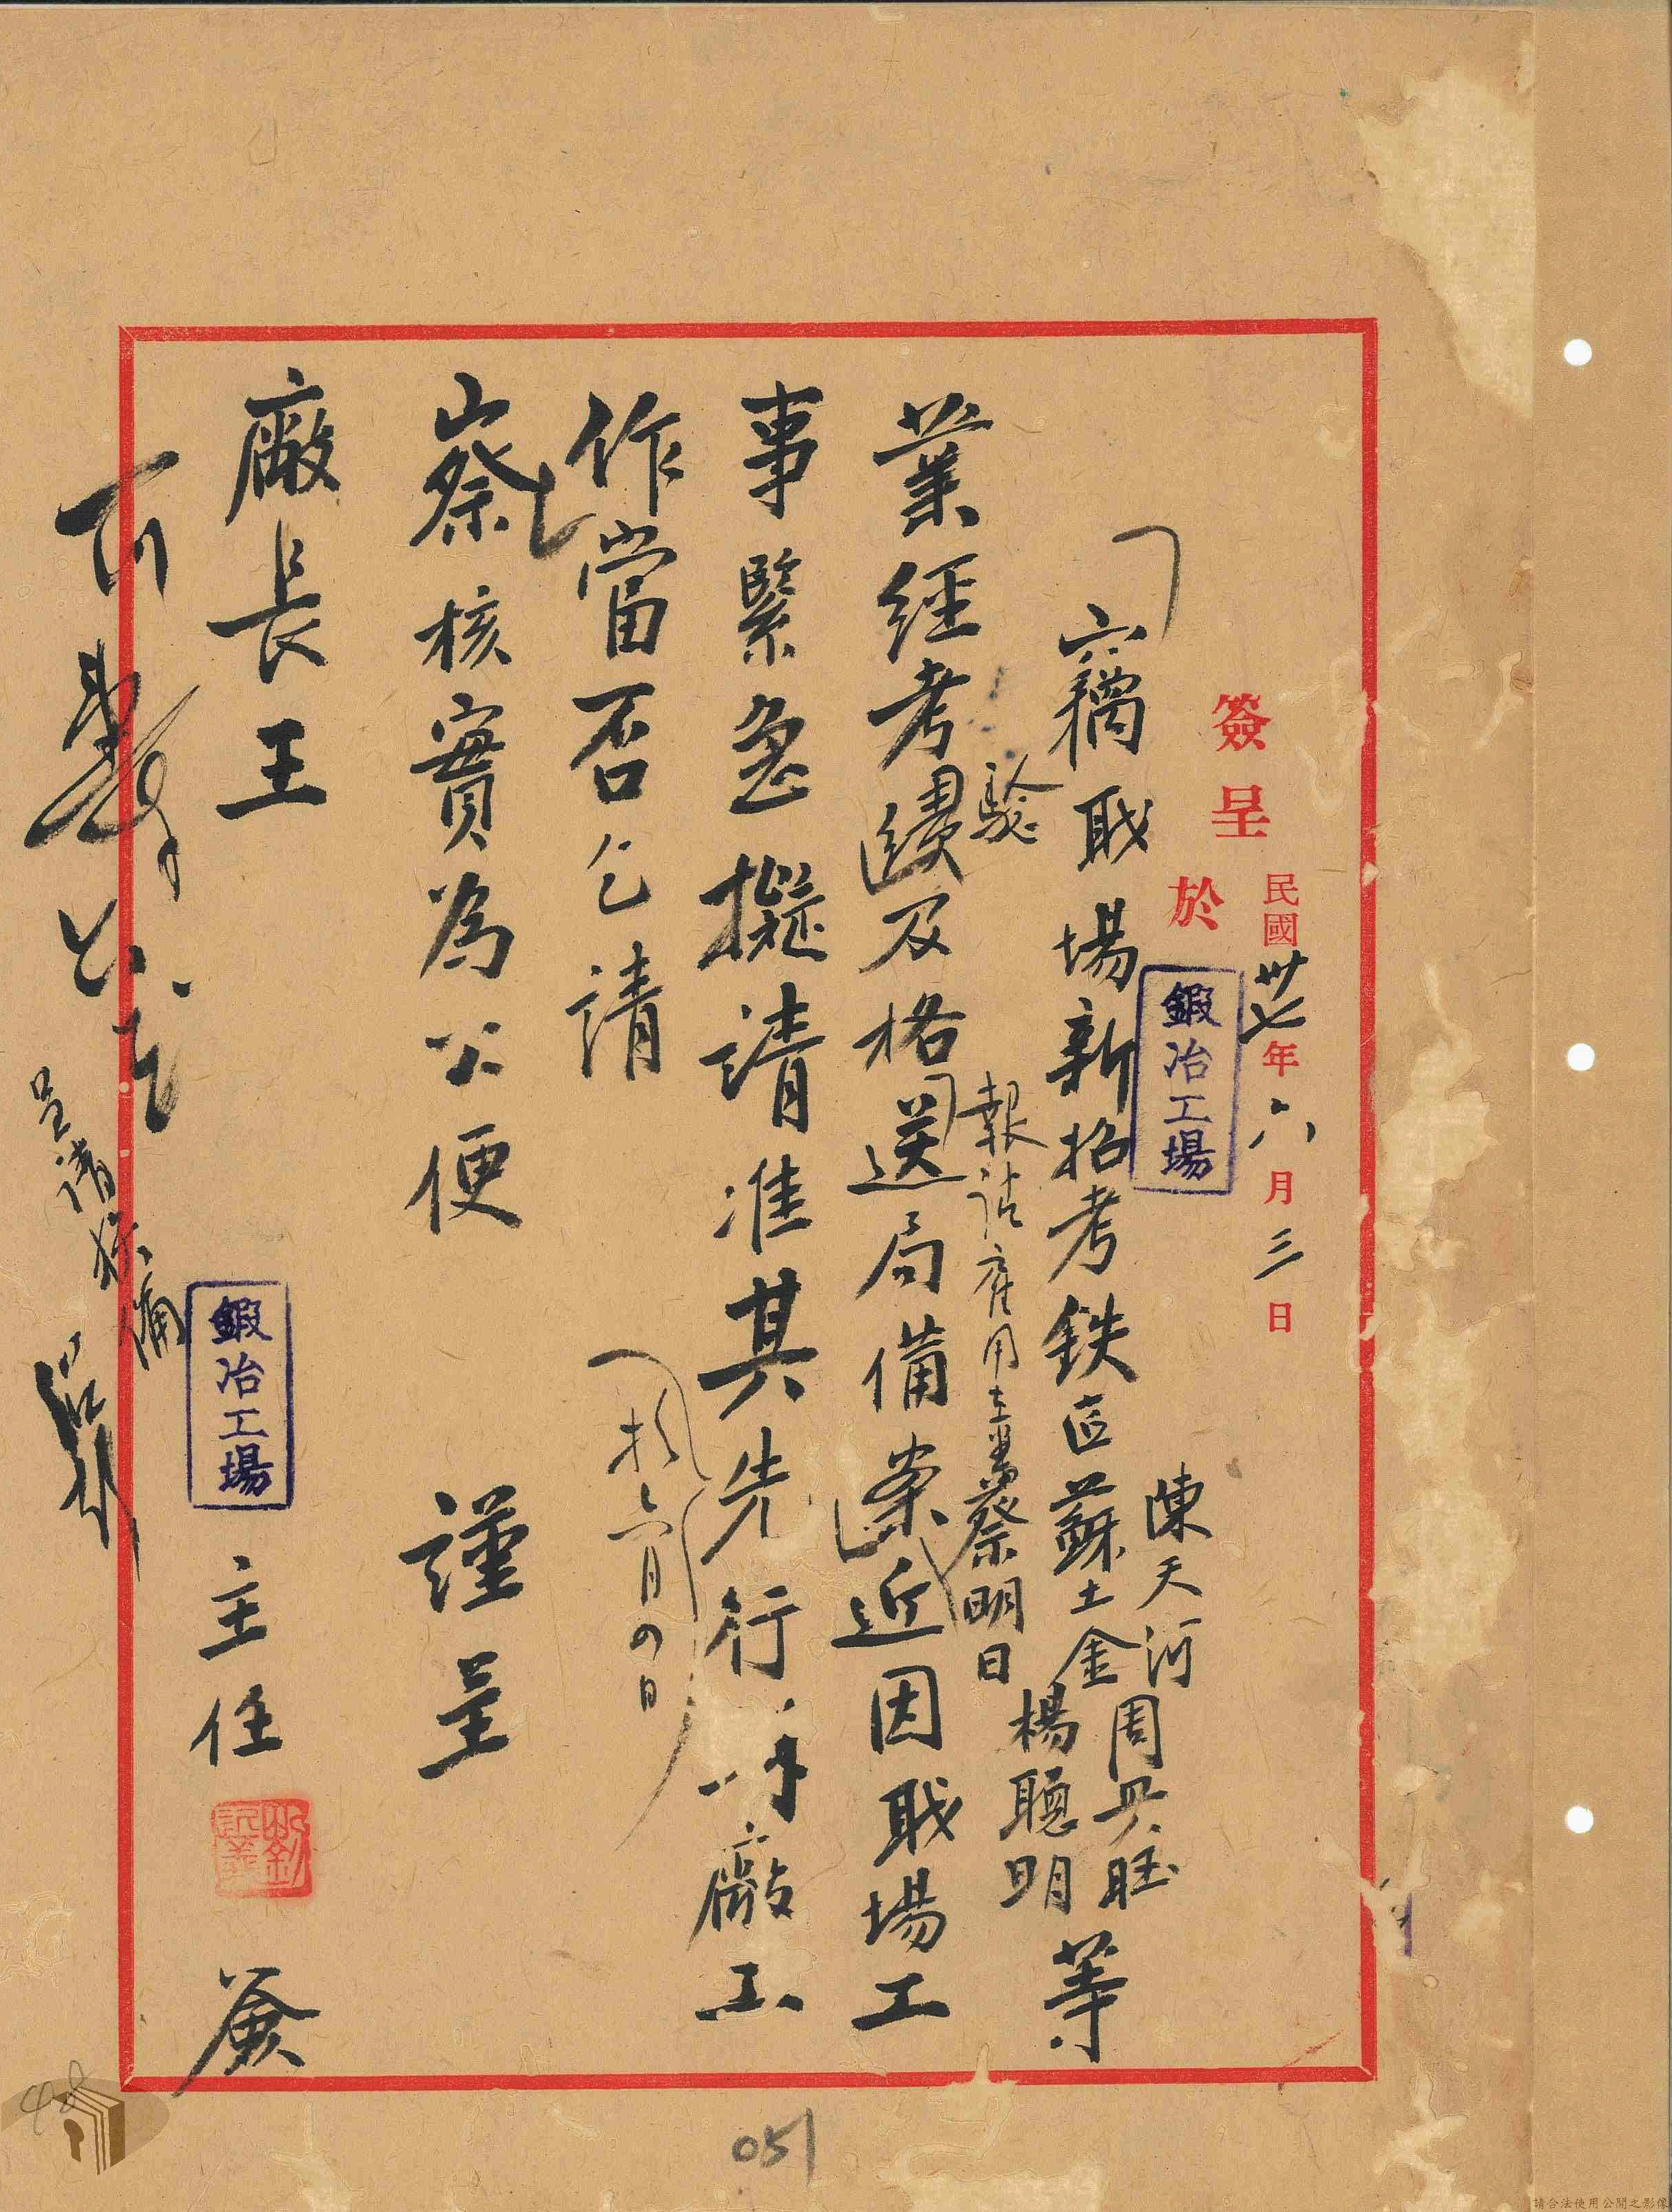 民國卅七年六月三日
簽呈 於 鍛冶工場
陳天河 周興旺
竊職場新招考鉄匠蘇土金 楊聰明 等
驗 報請雇用 蔡明日
業經考績及格送局備案近因職場工
事緊急擬請准其先行 廠工
作當否乞請
六月四日
察核實為公便 謹呈
廠長王
鍛冶工場 主任 簽
可
呈請核備
051
48
請合法使用公開之影像